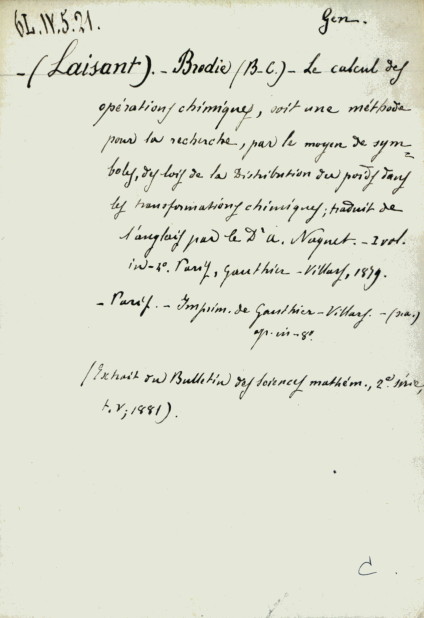 6L.IV.5.21.
Gen.
- (Laisant). - Brodie (B-C.) - Le calcul des
opérations chimiques, soit une méthode
pour la recherche, par le moyen de sym=
boles, des lois de la Distribution du poids dans
les transformations chimiques; traduit de
l'anglais par le Dr A. Naquet. - 1 vol.
in-4°. Paris, Gauthier-Villars, 1879.
- Paris. - Imprim. de Gauthier-Villars. -
in-8°.
(Extrait du Bulletin des Sciences mathém., 2e série,
t. V; 1881).
C.